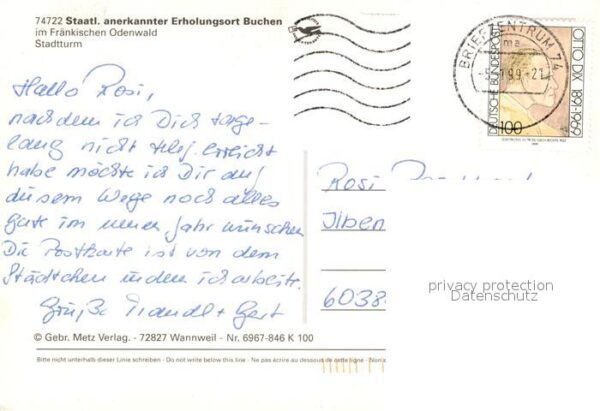 74722 Staatl. anerkannter Erholungsort Buchen
im Fränkischen Odenwald
Stadtturm
Hallo Rosi,
nachdem ich Dich tage-
lang nicht telef. erreicht
habe möchte ich Dir auf
diesem Wege noch alles
Gute im neuen Jahr wünschen
Die Postkarte ist von dem
Städtchen in dem ich arbeite.
Grüße + Gert
BRIEFZENTRUM 74
99-21
OTTO DIX 1891-1969
DEUTSCHE BUNDESPOST
100
Rosi
Ilben
6038
privacy protection
Datenschutz
© Gebr. Metz Verlag. - 72827 Wannweil - Nr. 6967-846 K 100
Bitte nicht unterhalb dieser Linie schreiben - Do not write below this line - Ne pas écrire au dessous de cette ligne - Non